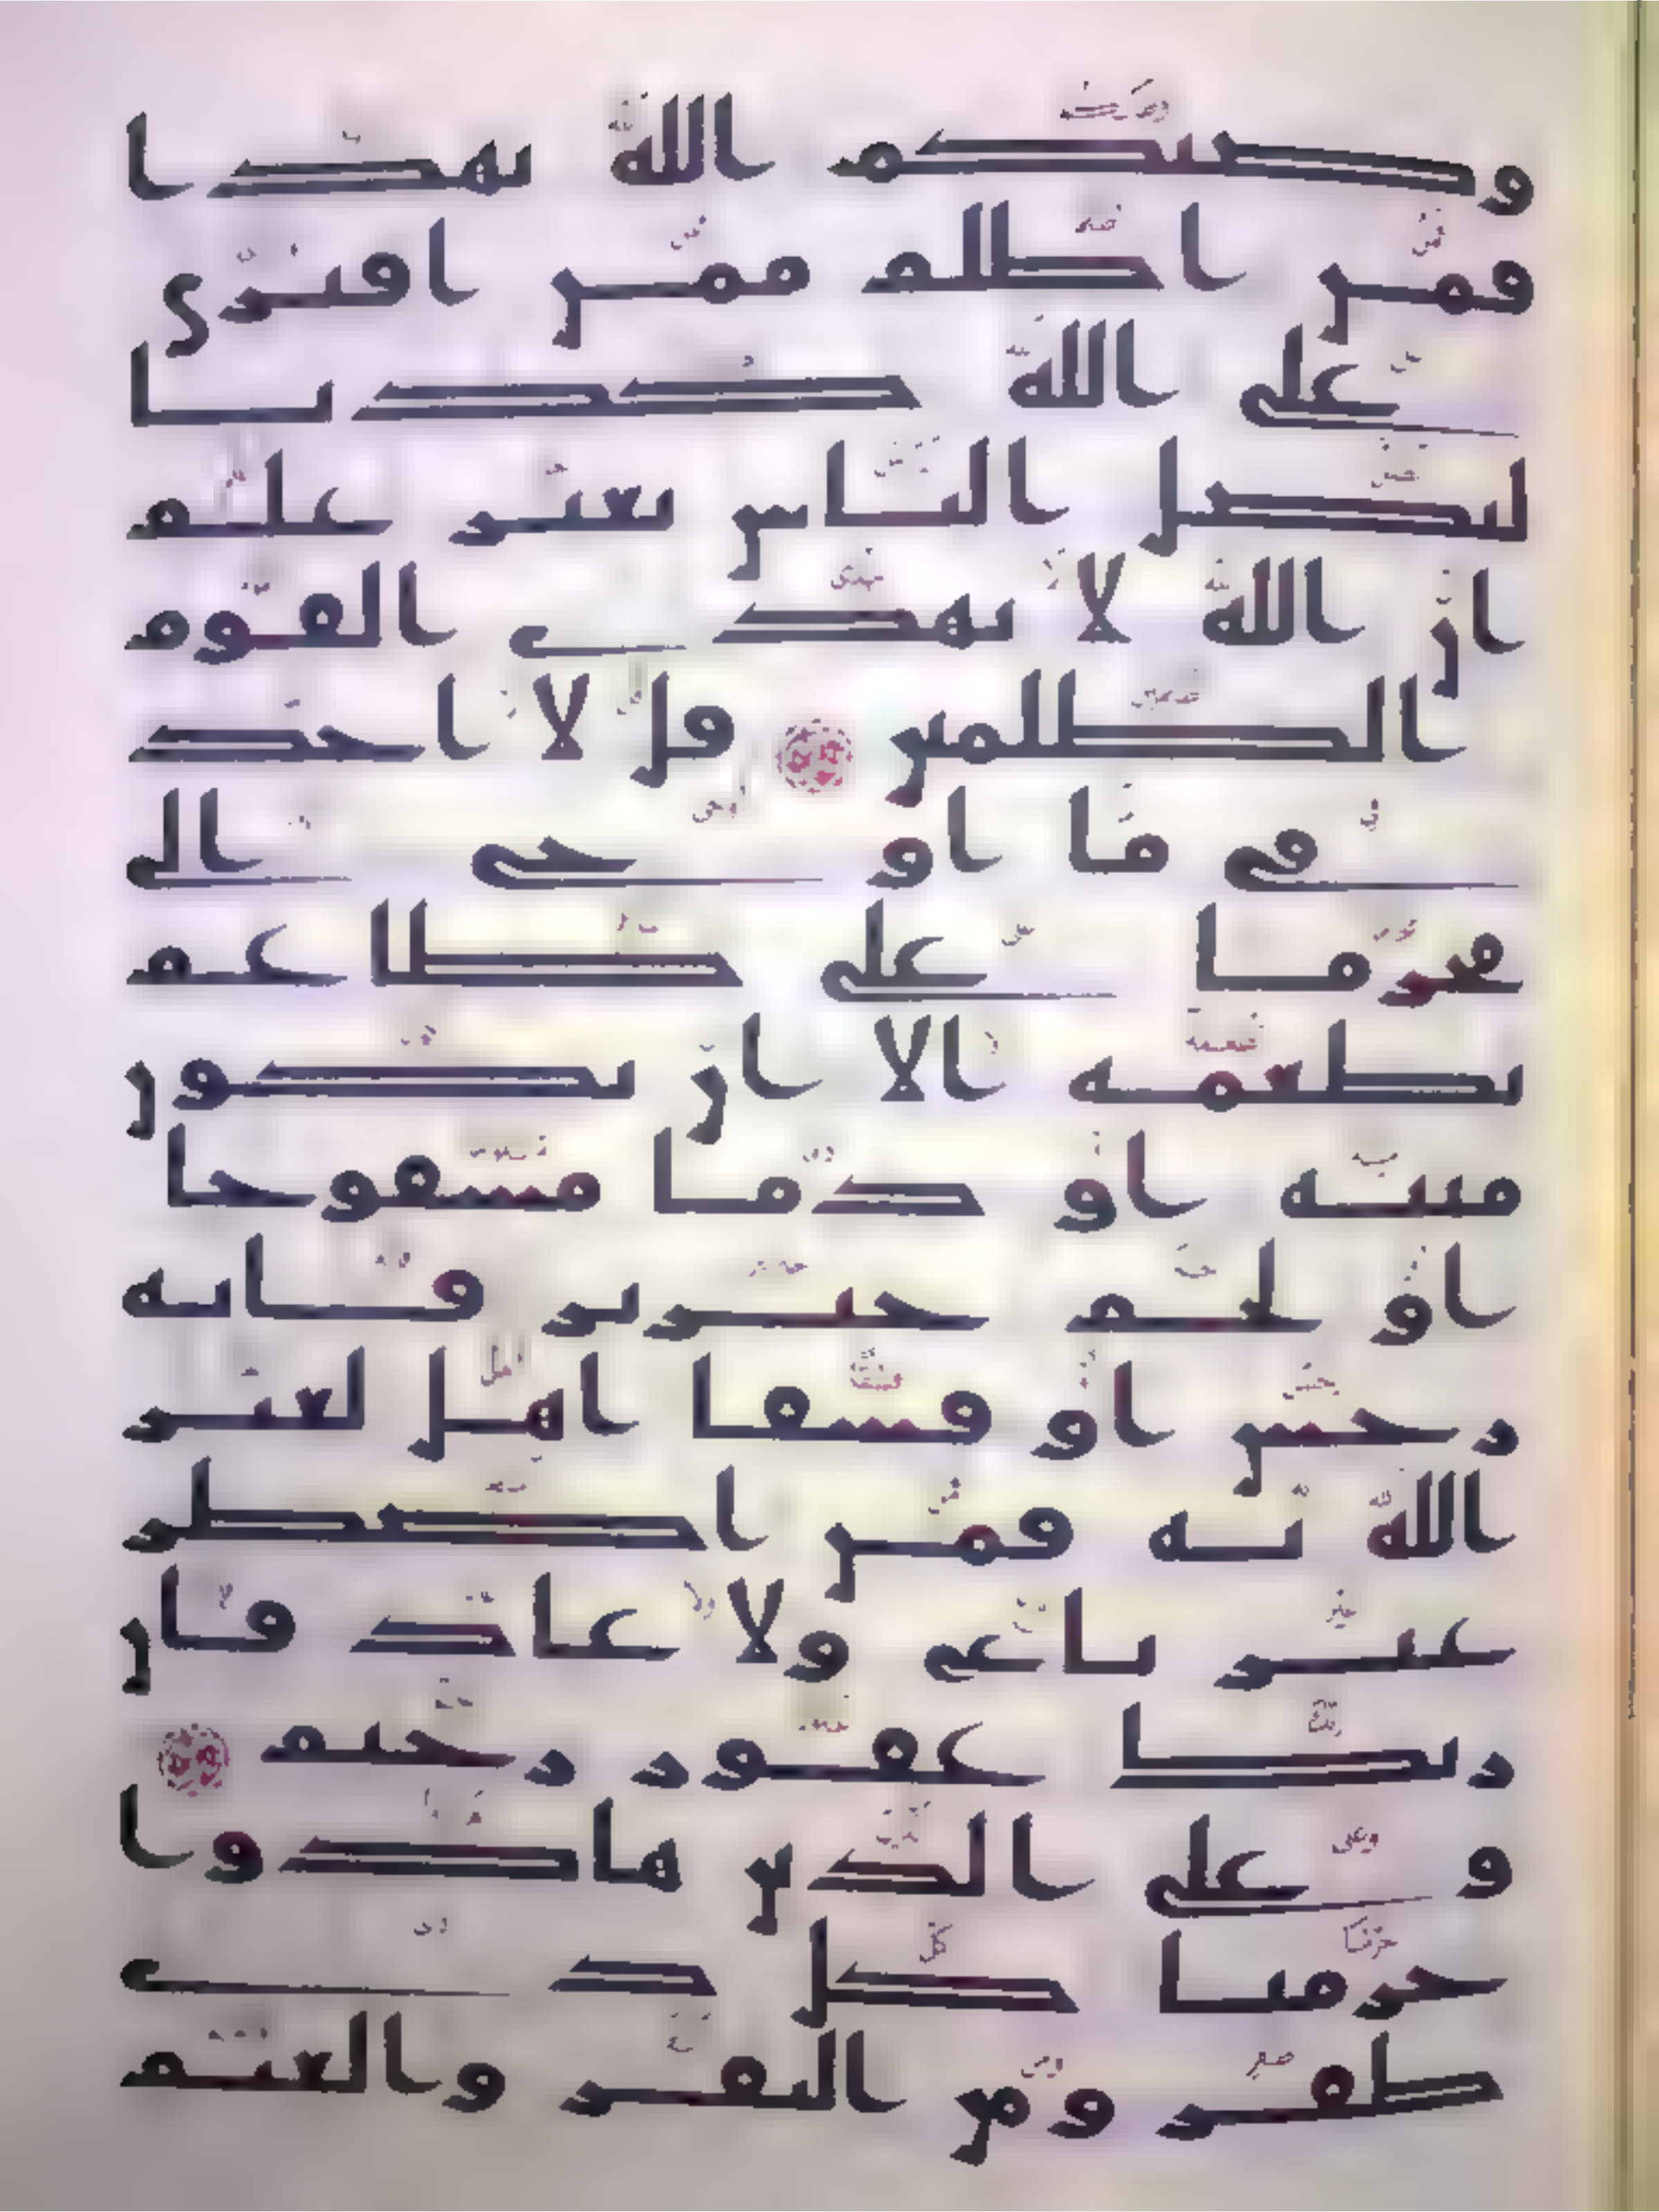 وصيكم الله بهذا
فمن اظلم ممن افترى
على الله كذبا
ليضل الناس بغير علم
ان الله لا يهدي القوم
الظلمين قل لا اجد
في ما اوحي الي
محرما على طاعم
يطعمه الا ان يكون
ميتة او دما مسفوحا
او لحم خنزير فانه
رجس او فسقا اهل لغير
الله به فمن اضطر
غير باغ ولا عاد فان
ربك غفور رحيم
وعلى الذين هادوا
حرمنا كل ذي
ظفر ومن البقر والغنم